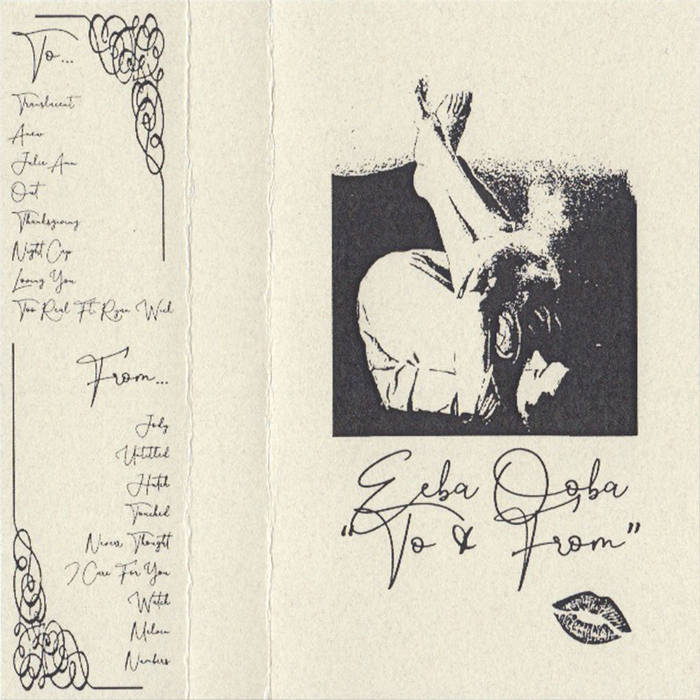 To...
Translucent
Anew
Julie Ann
Out
Thanksgiving
Night Cap
Losing You
Too Real Ft. Ryan Wick
From...
Jody
Untitled
Hatch
Touched
Never Thought
I Care For You
Watch
Melow
Numbers
Eeba Ooba
"To & From"